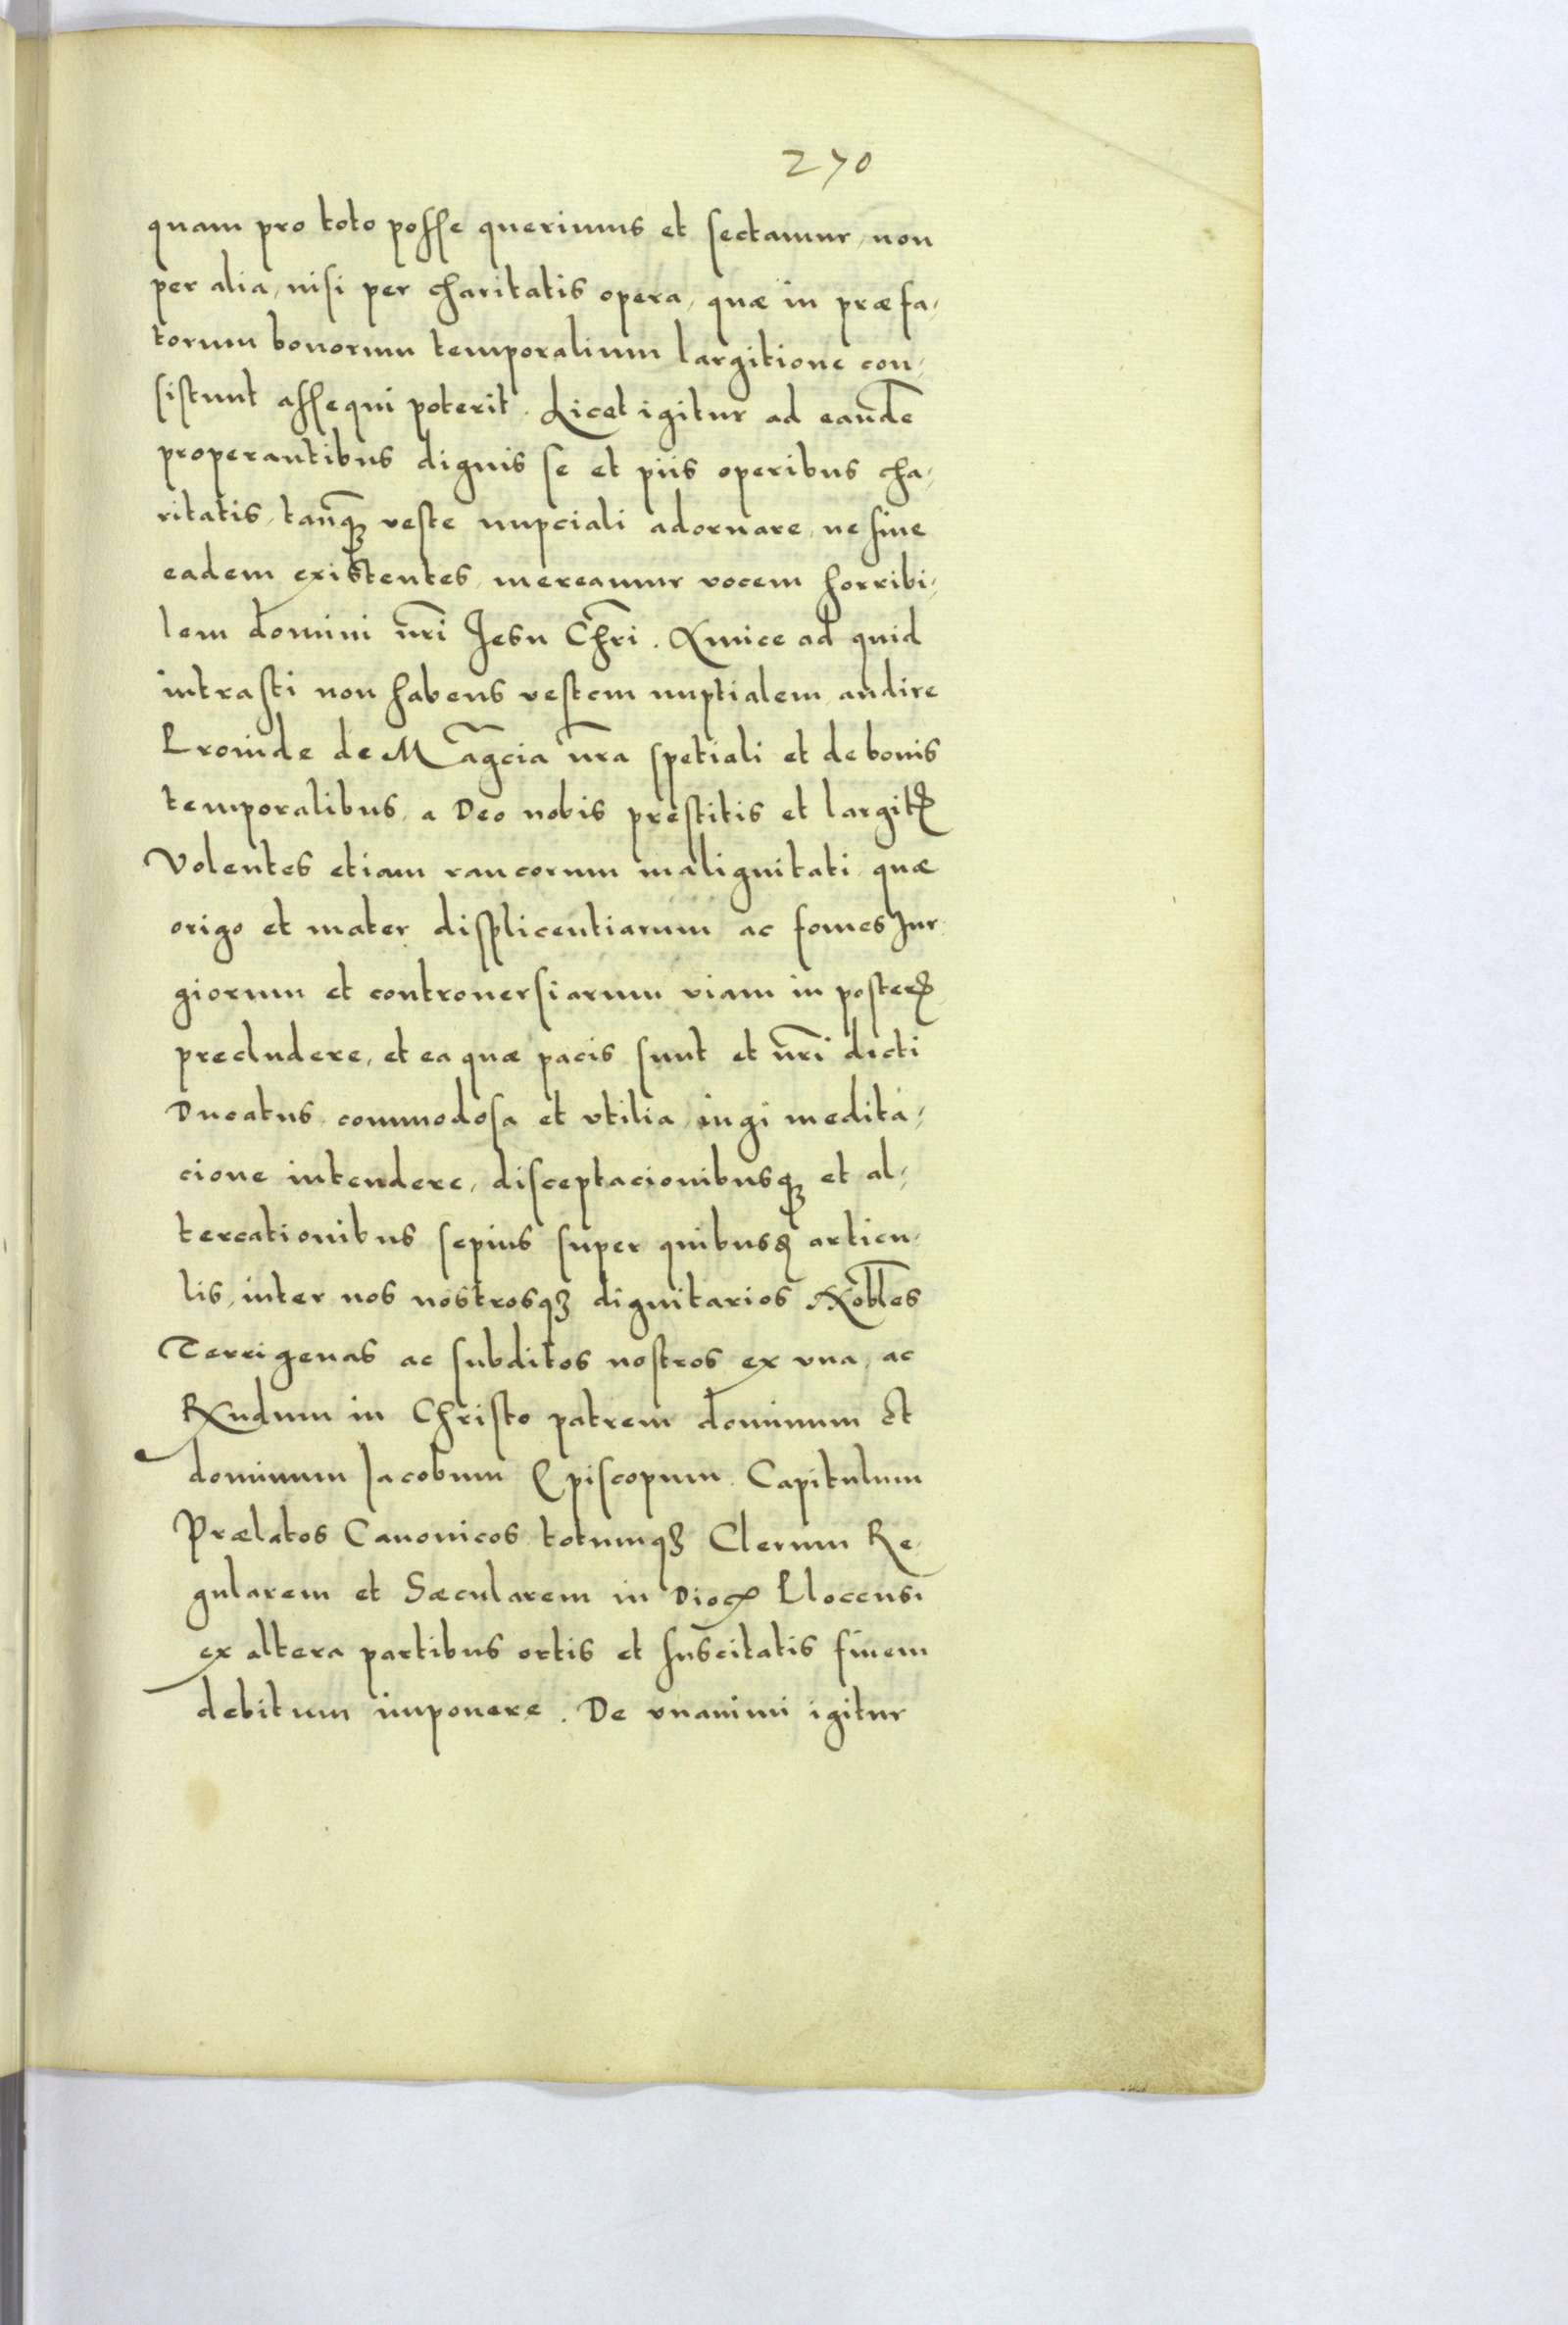 270
quam pro toto posse querimus et sectamur, non
per alia, nisi per charitatis opera, quæ in præfa,
torum bonorum temporalium largitione con,
sistunt assequi poterit. Licet igitur ad eandē
properantibus dignis se et piis operibus cha,
ritatis, tanq̃ꝫ veste nupciali adornare, ne sine
eadem existentes, mereamur vocem horribi,
lem domini nr̃i Jesu Chr̃i. Amice ad quid
intrasti non habens vestem nuptialem, audire
Proinde de M ãgcia nr̃a spetiali et de bonis
temporalibus, a Deo nobis prestitis et largitꝭ
Volentes etiam rancorum malignitati, quæ
origo et mater displicentiarum ac fomes Jur
giorum et controuersiarum viam in posterꝭ
precludere, et ea quæ pacis sunt et nr̃i dicti
Ducatus commodosa et vtilia, iugi medita,
cione intendere, disceptacionibusqꝫ et al,
tercationibus sepius super quibusꝗ articu,
lis, inter nos nostrosqꝫ dignitarios Nobl̃es
Terrigenas ac subditos nostros ex vna, ac
Rñdum in Christo patrem dominum et
dominum Jacobum Episcopum. Capitulum
Prælatos Canonicos totumqꝫ Clerum Re,
gularem et Sæcularem in Diocꝭ Plocensi
ex altera partibus ortis et suscitatis finem
debitum imponere. De vnanimi igitur